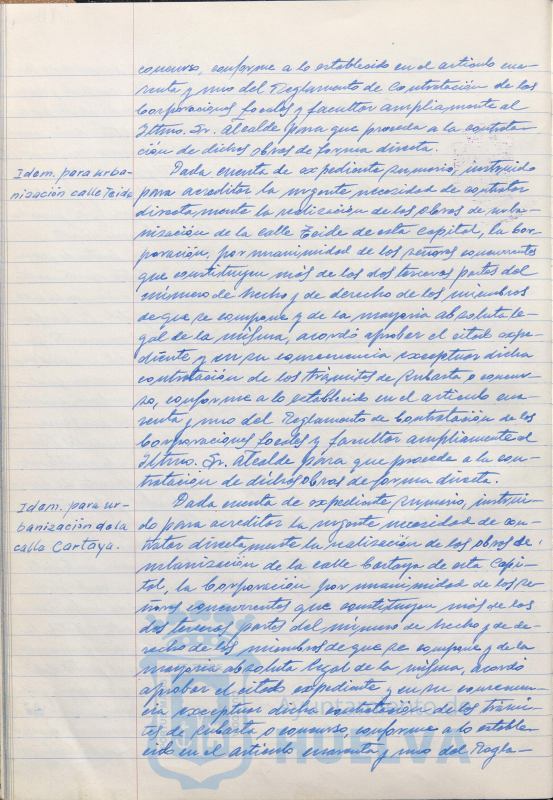 concurso, conforme a lo establecido en el artículo cua-
renta y uno del Reglamento de Contratación de las
Corporaciones Locales y facultar ampliamente al
Iltmo. Sr. Alcalde para que proceda a la contrata-
ción de dichas obras de forma directa.
Idem. para urba-
nización calle Teide
Dada cuenta de expediente sumario, instruido
para acreditar la urgente necesidad de contratar
directamente la realización de las obras de urba-
nización de la calle Teide de esta capital, la Cor-
poración, por unanimidad de los señores concurrentes
que constituyen más de las dos terceras partes del
número de hecho y de derecho de los miembros
de que se compone y de la mayoría absoluta le-
gal de la misma, acordó aprobar el citado expe-
diente y en su consecuencia exceptuar dicha
contratación de los trámites de subasta o concur-
so, conforme a lo establecido en el artículo cua-
renta y uno del Reglamento de Contratación de las
Corporaciones Locales y facultar ampliamente al
Iltmo. Sr. Alcalde para que proceda a la con-
tratación de dichas obras de forma directa.
Idem. para ur-
banización de la
calle Cartaya.
Dada cuenta de expediente sumario, instrui-
do para acreditar la urgente necesidad de con-
tratar directamente la realización de las obras de
urbanización de la calle Cartaya de esta capi-
tal, la Corporación por unanimidad de los se-
ñores concurrentes que constituyen más de las
dos terceras partes del número de hecho y de de-
recho de los miembros de que se compone y de la
mayoría absoluta legal de la misma, acordó
aprobar el citado expediente y en su consecuen-
cia exceptuar dicha contratación de los trámi-
tes de subasta o concurso, conforme a lo estable-
cido en el artículo cuarenta y uno del Regla-
Ayuntamiento de
HUELVA